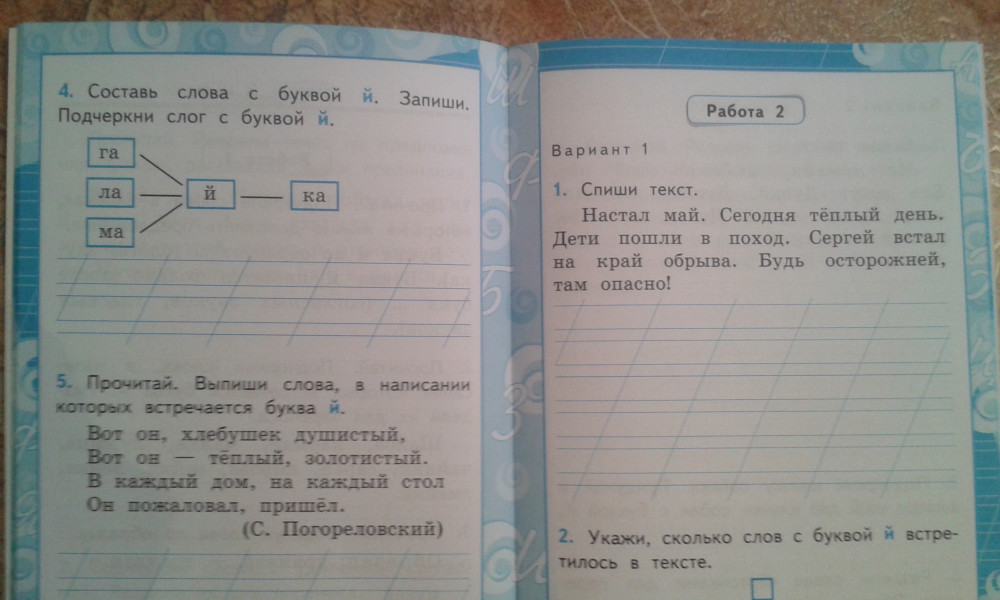 4. Составь слова с буквой й. Запиши.
Подчеркни слог с буквой й.
га
ла
й
ка
ма
5. Прочитай. Выпиши слова, в написании
которых встречается буква й.
Вот он, хлебушек душистый,
Вот он — тёплый, золотистый.
В каждый дом, на каждый стол
Он пожаловал, пришёл.
(С. Погореловский)
Работа 2
Вариант 1
1. Спиши текст.
Настал май. Сегодня тёплый день.
Дети пошли в поход. Сергей встал
на край обрыва. Будь осторожней,
там опасно!
2. Укажи, сколько слов с буквой й встре-
тилось в тексте.